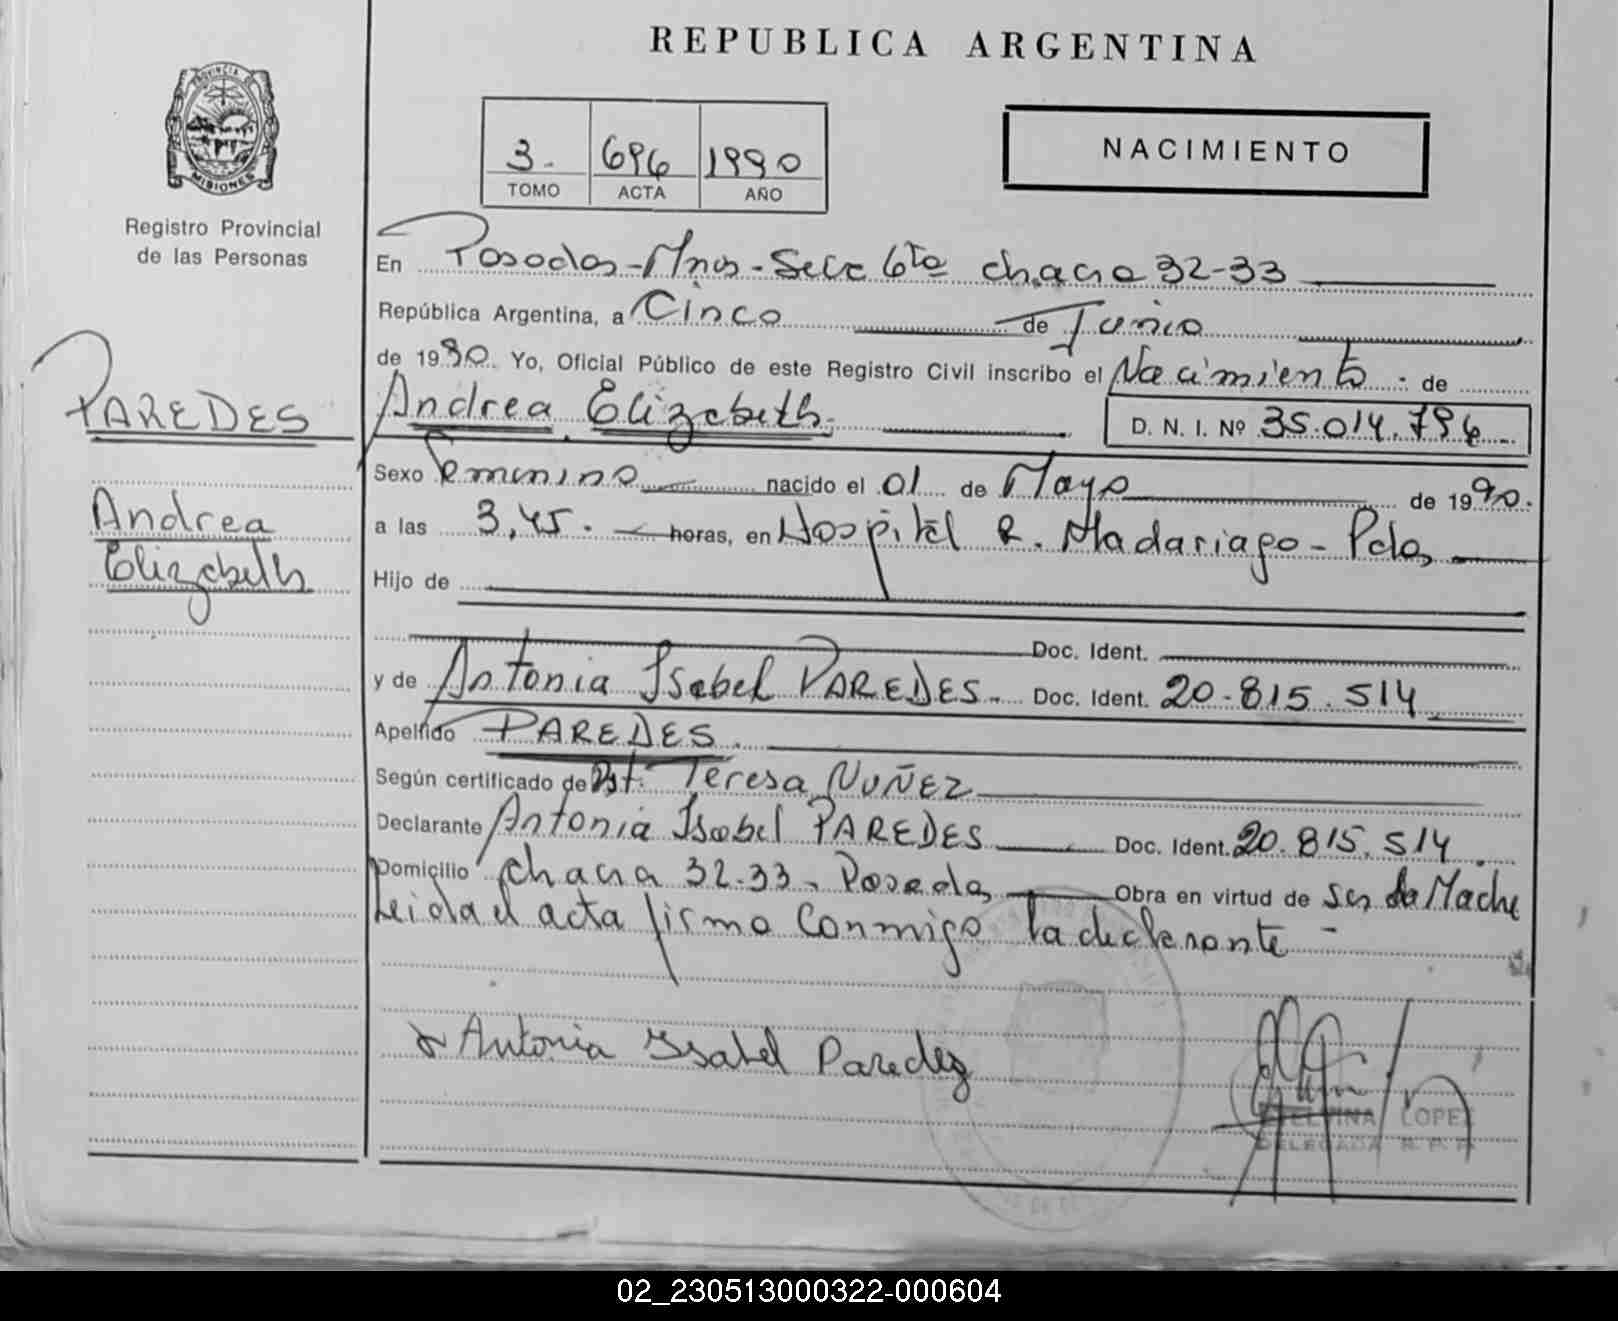 REPUBLICA ARGENTINA
PROVINCIA DE
MISIONES
Registro Provincial
de las Personas
3.
696
1990
TOMO
ACTA
AÑO
NACIMIENTO
En Posadas-Mnes-Secc 6ta chacra 32-33
República Argentina, a Cinco de Junio
de 1990. Yo, Oficial Público de este Registro Civil inscribo el Nacimiento. de
PAREDES
Andrea
Elizabeth
Andrea Elizabeth.
D. N. I. Nº 35.014.796
Sexo Femenino nacido el 01 de Mayo de 1990.
a las 3,45. horas, en Hospital R. Madariaga - Pdas
Hijo de
Doc. Ident.
y de Antonia Isabel PAREDES. Doc. Ident. 20.815.514
Apellido PAREDES.
Según certificado de Teresa NUÑEZ
Declarante Antonia Isabel PAREDES Doc. Ident. 20.815.514.
Domicilio chacra 32-33. Posadas Obra en virtud de ser la Madre
Leida el acta firma conmigo la declarante -
x Antonia Ysabel Paredez
LOPEZ
DELEGADA R. P. P.
02_230513000322-000604